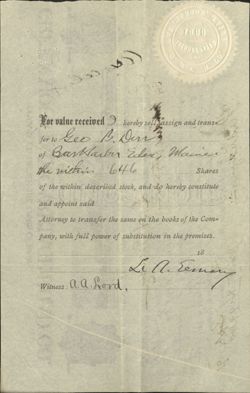 For value received I hereby sell assign and trans-
fer to Geo B. Dorr
of Bar Harbor Eden, Maine
the within 646 Shares
of the within described stock, and do hereby constitute
and appoint said
Attorney to transfer the same on the books of the Com-
pany, with full power of substitution in the premises.
18
L. A. Emery
Witness A. A. Lord.